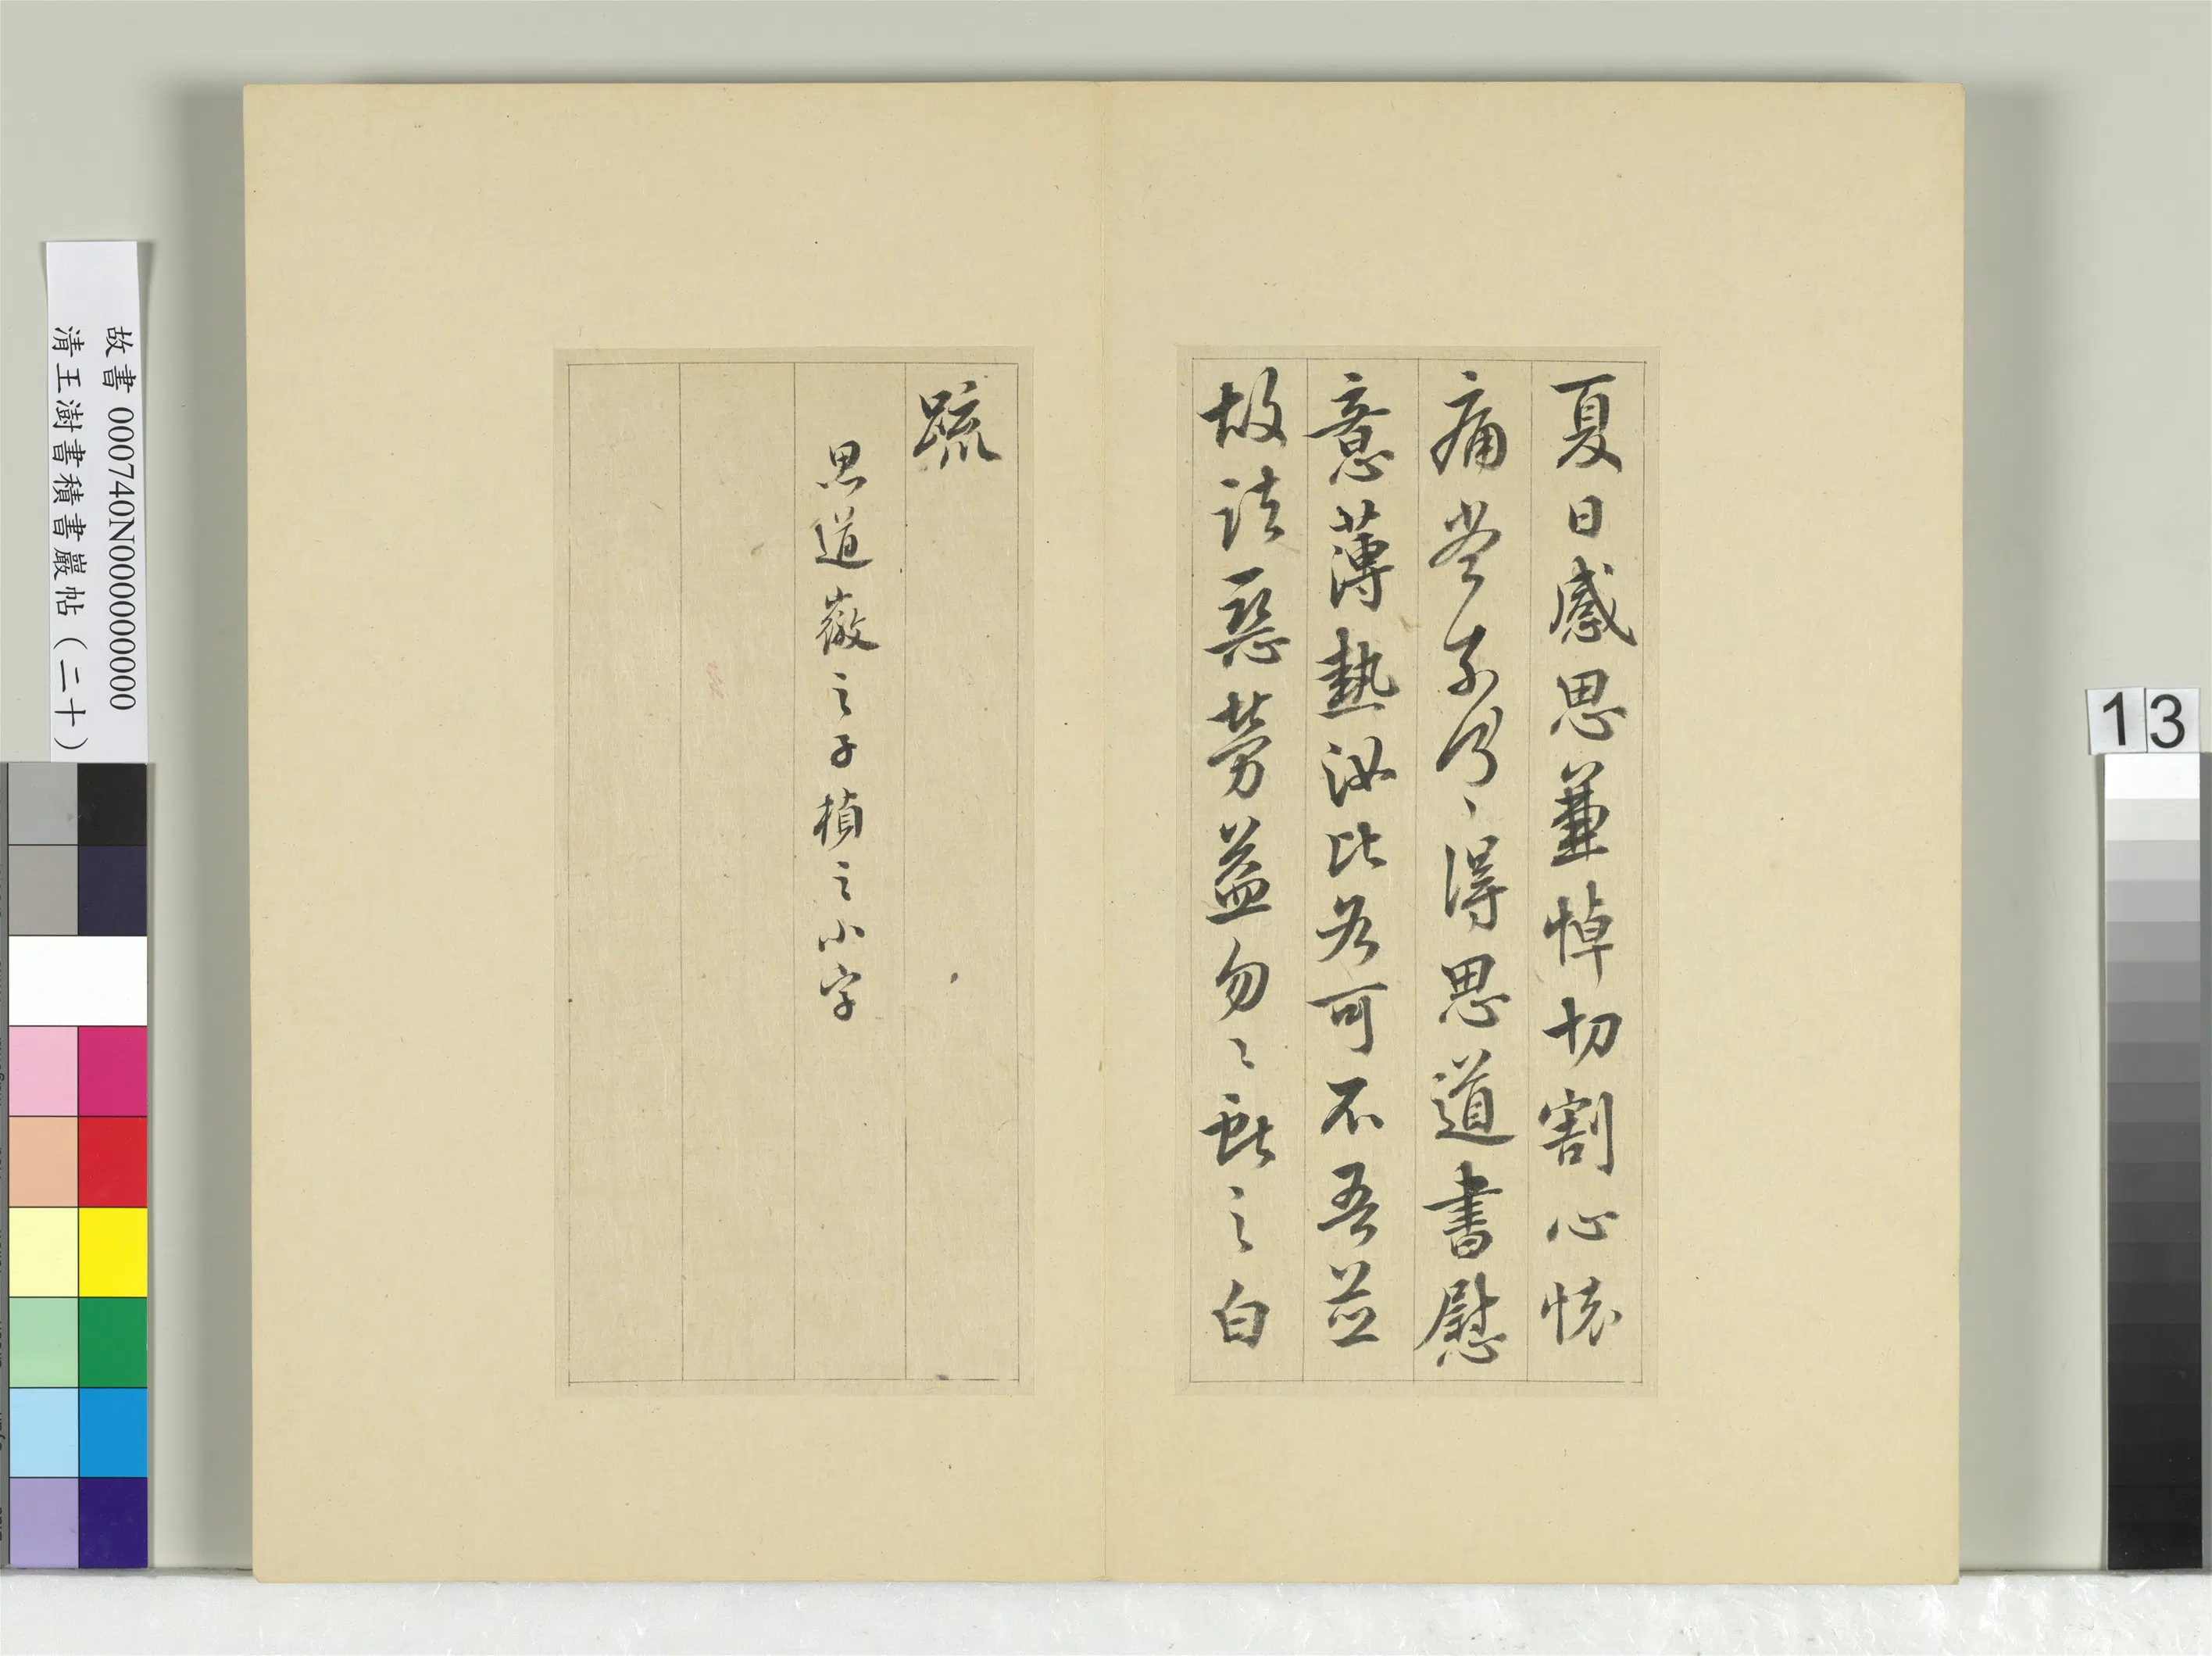 夏日感思兼悼切割心懷
痛當奈何、得思道書慰
意薄熱汝比各可不吾並
故諸惡勞益勿〻獻之白
疏
思道徽之子楨之小字
故書 000740N000000000
清王澍書積書巖帖（二十）
13